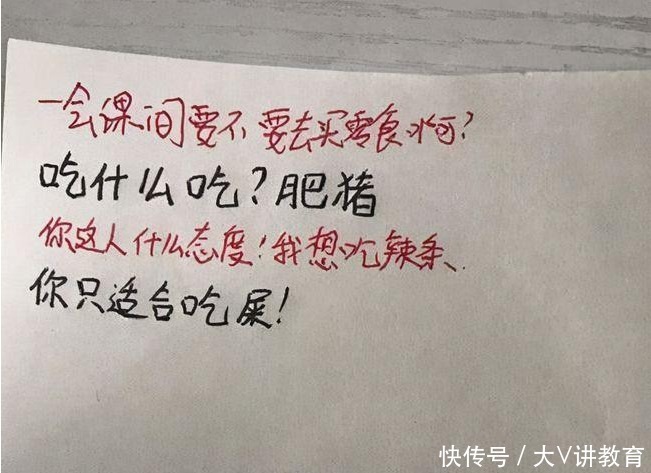 一会课间要不要去买零食啊？
吃什么吃？肥猪
你这人什么态度！我想吃辣条、
你只适合吃屎！
快传号 / 大V讲教育